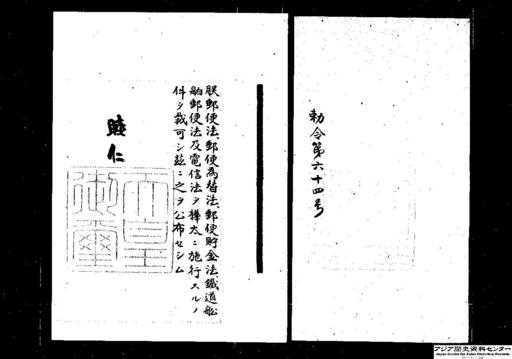 勅令第六十四号
朕郵便法、郵便為替法、郵便貯金法、鐵道船
舶郵便法及電信法ヲ樺太ニ施行スルノ
件ヲ裁可シ茲ニ之ヲ公布セシム
睦仁
天皇御璽
アジア歴史資料センター
Japan Center for Asian Historical Records